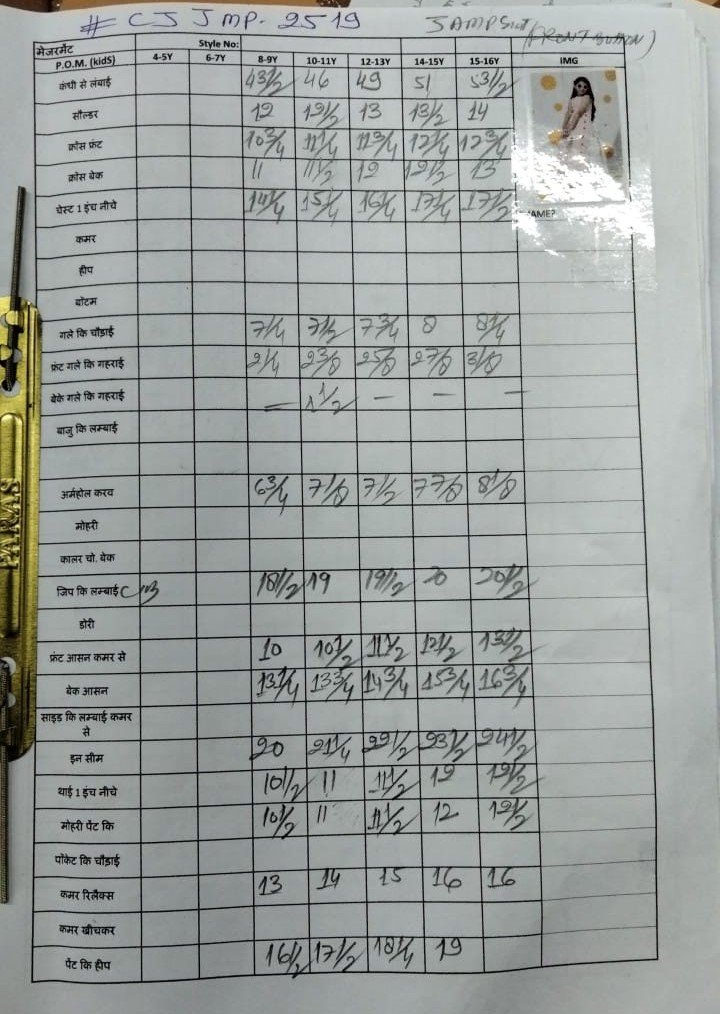 # CJJMP-2519 JAMPSuit (FRONT BUTTON)
मेजरमेंट Style No:
P.O.M. (kidS) 4-5Y 6-7Y 8-9Y 10-11Y 12-13Y 14-15Y 15-16Y IMG
कंधी से लंबाई 43 1/2 46 49 51 53 1/2
सोल्डर 12 12 1/2 13 13 1/2 14
क्रोस फ्रंट 10 3/4 11 1/4 11 3/4 12 1/4 12 3/4
क्रोस बेक 11 11 1/2 12 12 1/2 13
चेस्ट 1 इंच नीचे 14 1/4 15 1/4 16 1/4 17 1/4 17 1/2
AME?
कमर
हीप
बॉटम
गले कि चौड़ाई 7 1/4 7 1/2 7 3/4 8 8 1/4
फ्रंट गले कि गहराई 2 1/4 2 3/8 2 5/8 2 7/8 3 1/8
बेके गले कि गहराई – 1 1/2 – – –
बाजु कि लम्बाई
अर्महोल करव 6 3/4 7 1/8 7 1/2 7 7/8 8 1/8
मोहरी
कालर चो. बेक
जिप कि लम्बाई CB 18 1/2 19 19 1/2 20 20 1/2
डोरी
फ्रंट आसन कमर से 10 10 1/2 11 1/2 12 1/2 13 1/2
बेक आसन 13 1/4 13 3/4 14 3/4 15 3/4 16 3/4
साइड कि लम्बाई कमर
से
इन सीम 20 21 1/4 22 1/2 23 1/2 24 1/2
थाई 1 इंच नीचे 10 1/2 11 11 1/2 12 12 1/2
मोहरी पेंट कि 10 1/2 11 11 1/2 12 12 1/2
पॉकेट कि चौड़ाई
कमर रिलैक्स 13 14 15 16 16
कमर खीचकर
पेंट कि हीप 16 1/2 17 1/2 18 1/4 19
PARAS